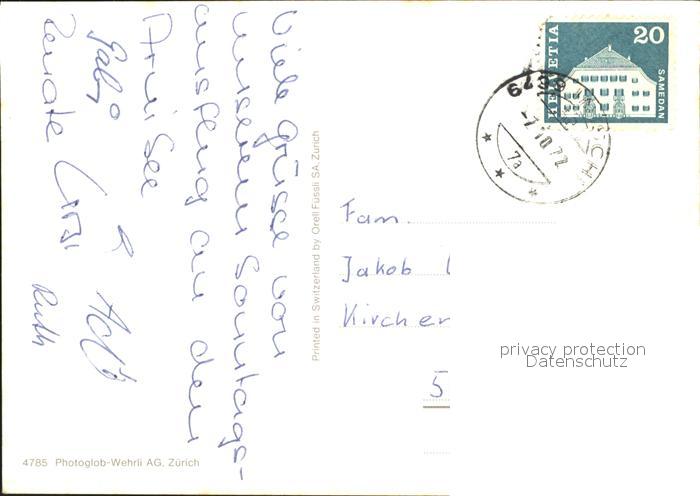 Viele Grüsse von
unserem Sonntags-
ausflug an den
Arnisee
Gaby
Renate
Ruth
Printed in Switzerland by Orell Füssli SA, Zürich
4785 Photoglob-Wehrli AG, Zürich
HELVETIA
20
SAMEDAN
-7.10.72
7a
Fam.
Jakob
Kircher
5
privacy protection
Datenschutz